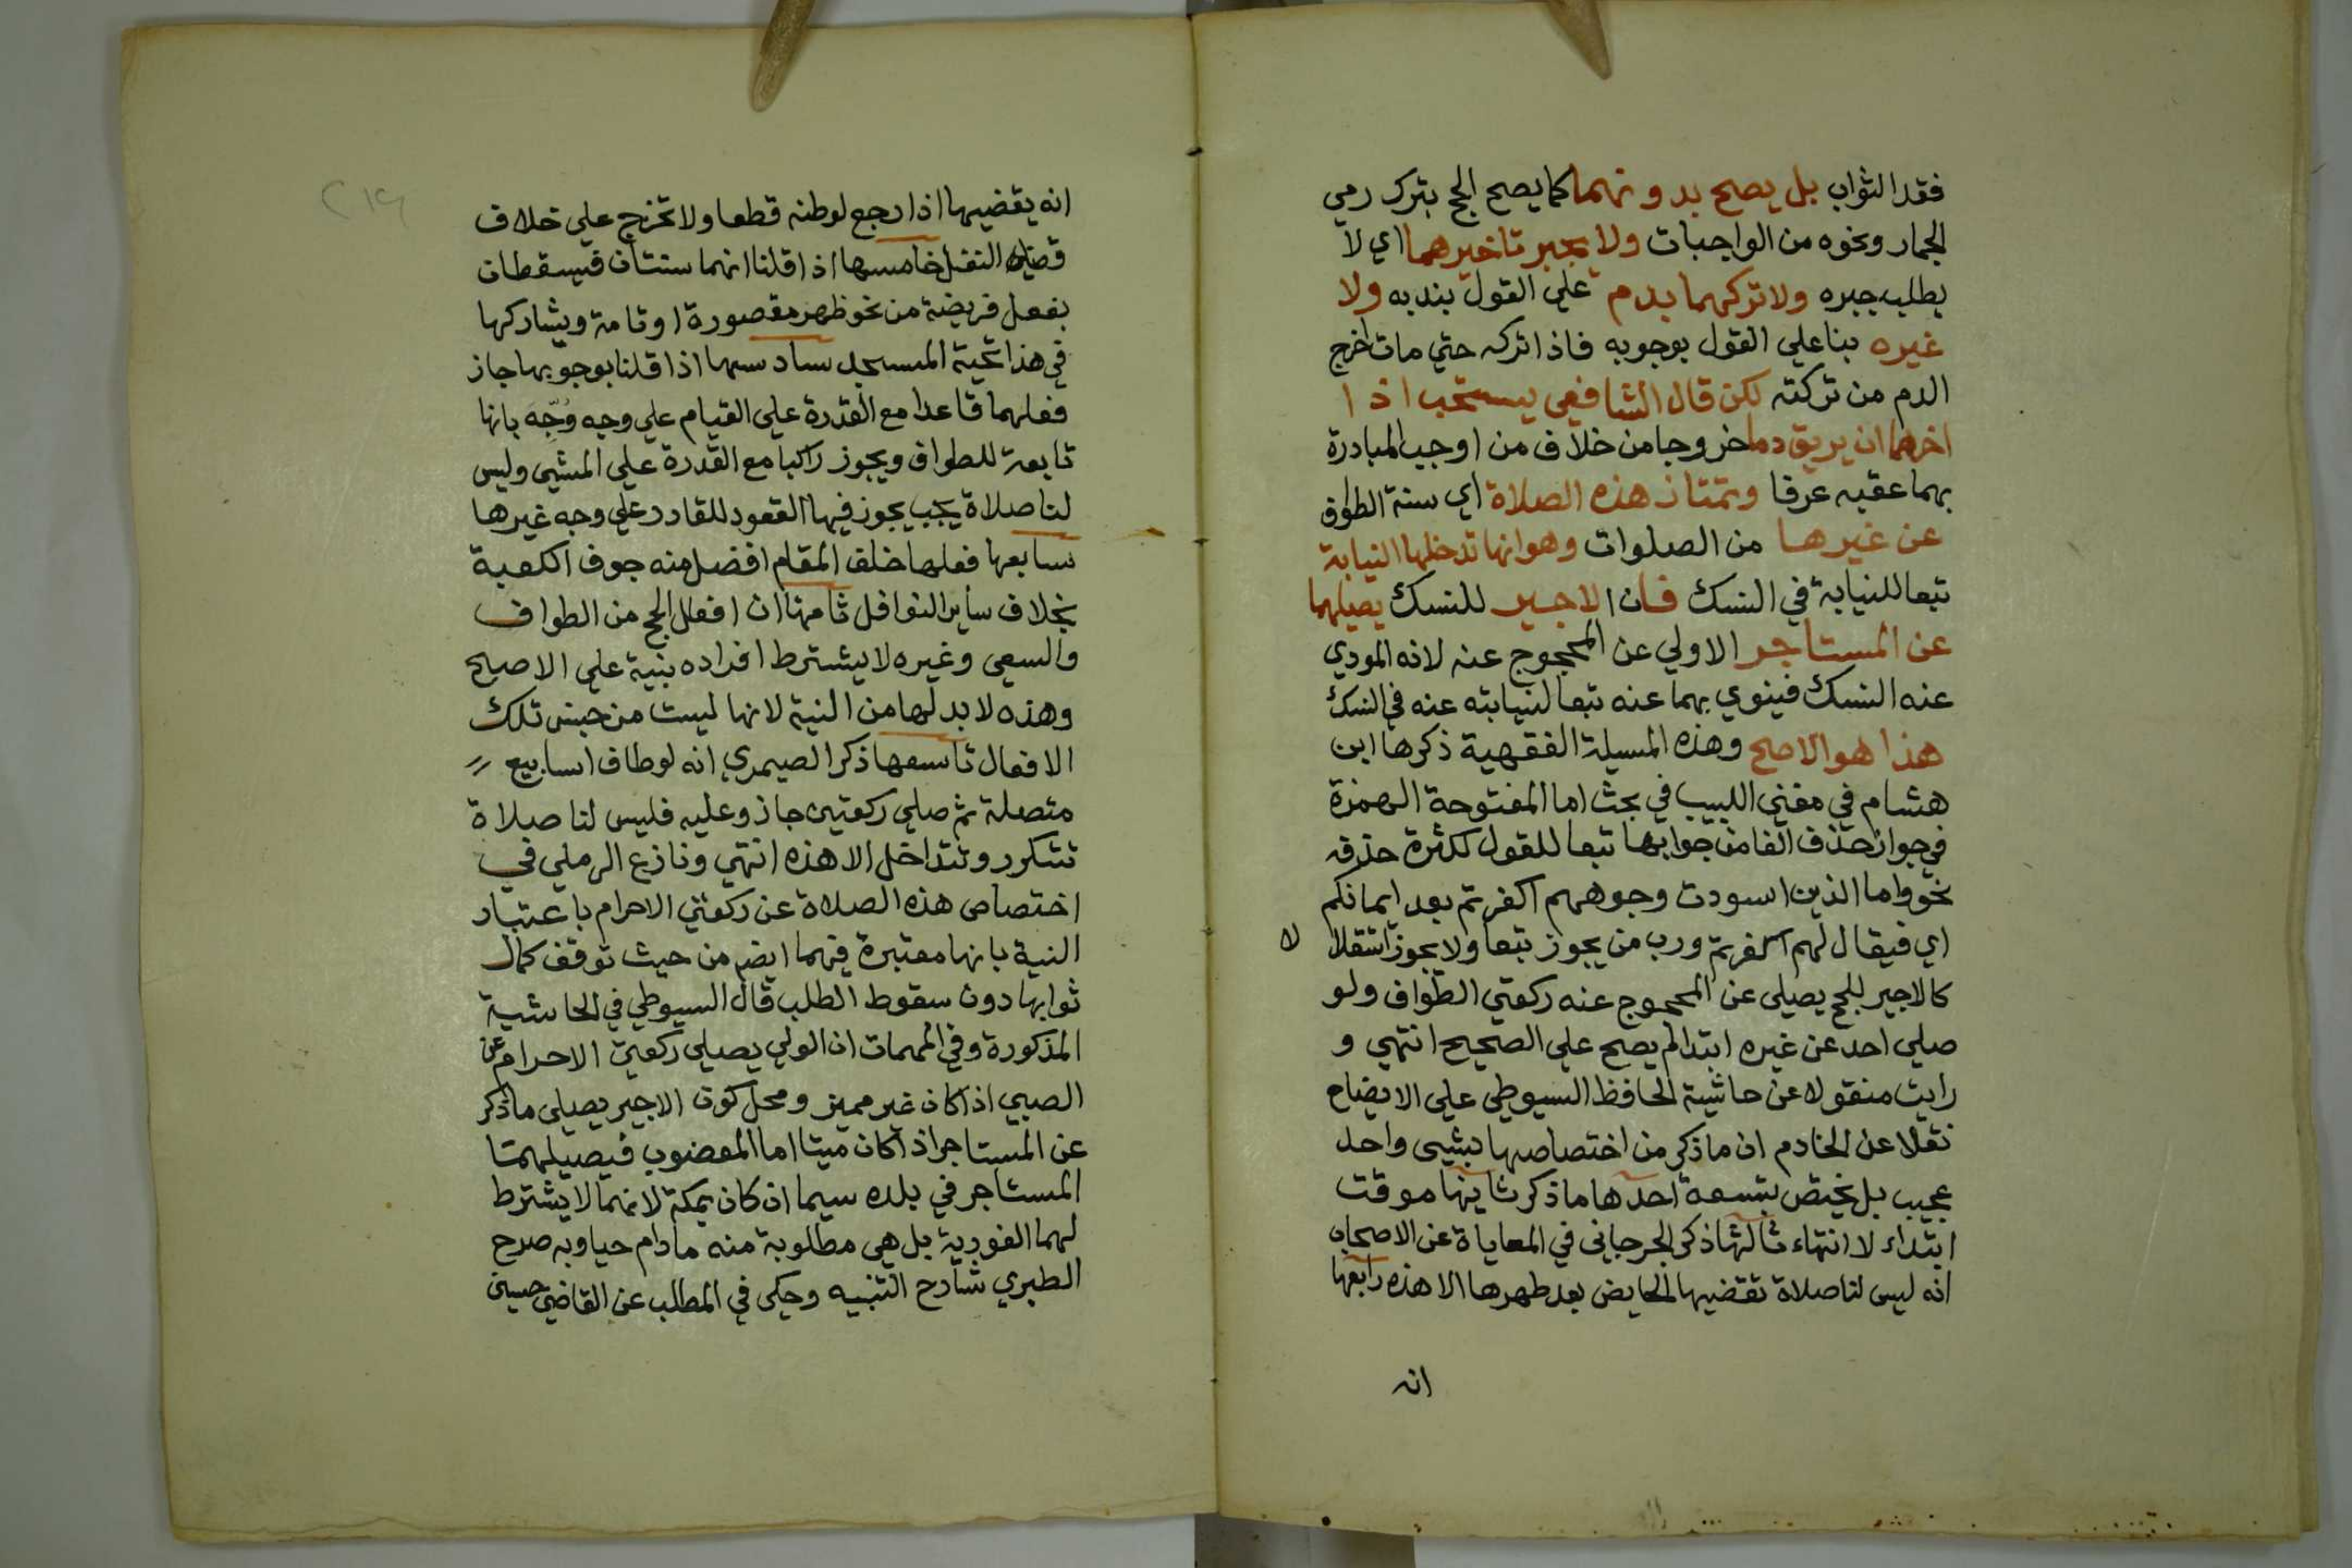 فقد الثواب بل يصح بدونهما كما يصح الحج بترك رمي
الجمار ونحوه من الواجبات ولا يجبر تاخيرهما اي لا
يطلب جبره ولا تركهما بدم علي القول بندبه ولا
غيره بنا علي القول بوجوبه فاذا تركه حتي مات اخرج
الدم من تركته لكن قال الشافعي يستحب اذا
اخرهما ان يريق دما خروجا من خلاف من اوجب المبادرة
بهما عقبه عرفا وتمتاز هذه الصلاة اي سنة الطواف
عن غيرها من الصلوات وهو انها تدخلها النيابة
تبعا للنيابة في النسك فان الاجير للنسك يصليهما
عن المستاجر الاولي عن المحجوج عنه لانه المودي
عنه النسك فينوي بهما عنه تبعا لنيابته عنه في النسك
هذا هو الاصح وهذه المسيلة الفقهية ذكرها ابن
هشام في مغني اللبيب في بحث اما المفتوحة الهمزة
في جواز حذف الفا من جوابها تبعا للقول لكثرة حذفه
نحو فاما الذين اسودت وجوههم اكفرتم بعد ايمانكم
اي فيقال لهم اكفرتم ورب من يجوز تبعا ولا يجوز استقلالا
كالاجير للحج يصلي عن المحجوج عنه ركعتي الطواف ولو
صلي احد عن غيره ابتدا لم يصح علي الصحيح انتهي و
رايت منقولا عن حاشية الحافظ السيوطي علي الايضاح
نقلا عن الخادم ان ما ذكر من اختصاصها بشيى واحد
عجيب بل يختص بتسعة احدها ما ذكر ثانيها موقت
ابتداء لا انتهاء ثالثها ذكر الجرجاني في المعاياة عن الاصحاب
انه ليس لنا صلاة تقضيها الحايض بعد طهرها الا هذه رابعها
انه
انه يقضيها اذا رجع لوطنه قطعا ولا تخرج علي خلاف
قضاء النفل خامسها اذا قلنا انهما سنتان فيسقطان
بفعل فريضة من نحو ظهر مقصورة او تامة ويشاركها
في هذا تحية المسجد سادسها اذا قلنا بوجوبها جاز
فعلهما قاعدا مع القدرة علي القيام علي وجه وُجِّه بانها
تابعة للطواف ويجوز راكبا مع القدرة علي المشي وليس
لنا صلاة يجب يجوز فيها القعود للقادر علي وجه غيرها
سابعها فعلها خلف المقام افضل منه جوف الكعبة
بخلاف ساير النوافل ثامنها ان افعال الحج من الطواف
والسعي وغيره لا يشترط افراده بنية علي الاصح
وهذه لا بد لها من النية لانها ليست من جنس تلك
الافعال تاسعها ذكر الصيمري انه لو طاف اسابيع
متصلة ثم صلي ركعتين جاز وعليه فليس لنا صلاة
تتكرر وتتداخل الا هذه انتهي ونازع الرملي في
اختصاص هذه الصلاة عن ركعتي الاحرام باعتبار
النية بانها معتبرة فيهما ايضم من حيث توقف كمال
ثوابها دون سقوط الطلب قال السيوطي في الحاشية
المذكورة وفي المهمات ان الولي يصلي ركعتي الاحرام عن
الصبي اذا كان غير مميز ومحل كون الاجير يصلي ما ذكر
عن المستاجر اذا كان ميتا اما المعضوب فيصليهما
المستاجر في بلده سيما ان كان بمكة لانهما لا يشترط
لهما الفورية بل هي مطلوبة منه ما دام حيا وبه صرح
الطبري شارح التنبيه وحكى في المطلب عن القاضي حسين